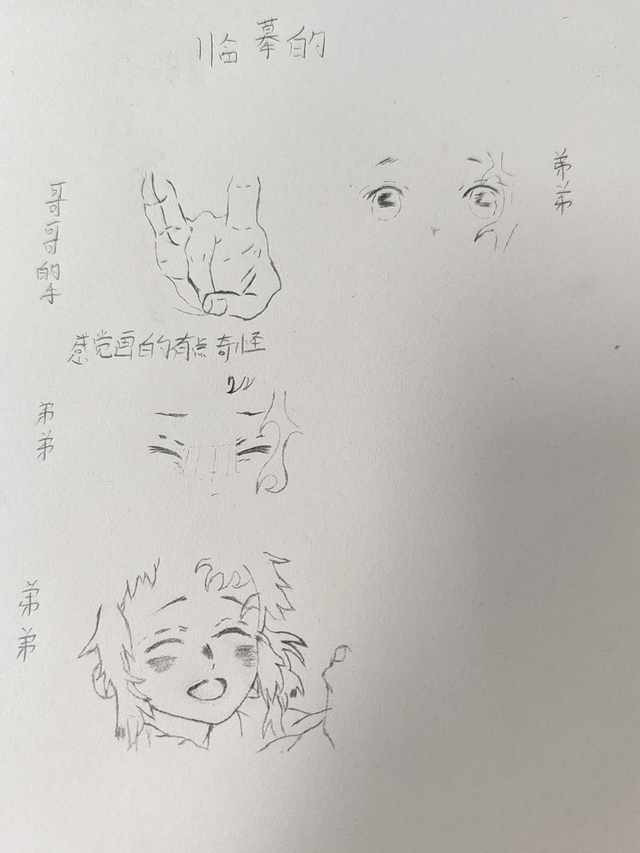 临摹的
哥哥的手
弟弟
感觉画的有点奇怪
弟弟
弟弟